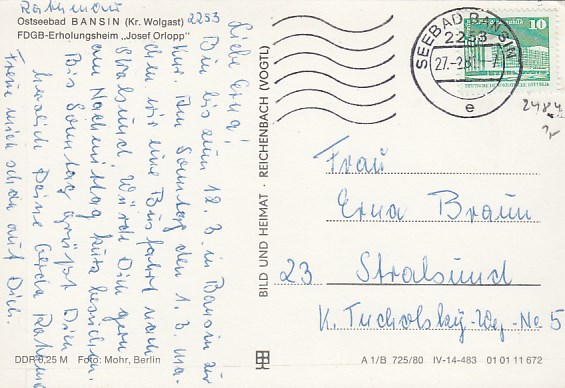 Ostseebad BANSIN (Kr. Wolgast) 2253
FDGB-Erholungsheim „Josef Orlopp"
Liebe Erna!
Bin bis zum 12. 3. in Bansin zur
Kur. Am Sonntag den 1. 3. ma-
chen wir eine Busfahrt nach
Stralsund. Würde Dich gern
am Nachmittag kurz besuchen.
Bis Sonntag grüßt Dich
herzlich Deine Gerda
Freue mich schon auf Dich.
BILD UND HEIMAT · REICHENBACH (VOGTL)
SEEBAD BANSIN
2253
27.-2.81.-7
e
10
2484
Frau
Erna Braun
23 Stralsund
K. Tucholsky-Weg-No 5
DDR 0,25 M Foto: Mohr, Berlin
A 1/B 725/80 IV-14-483 01 01 11 672